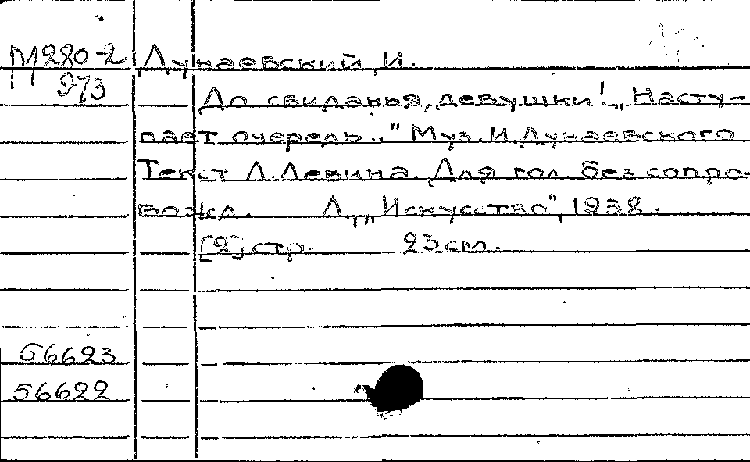 М280-2 Дунаевский, И.
973
До свиданья, девушки! „Насту-
пает очередь.." Муз. И. Дунаевского
Текст Л. Левина. Для гол. без сопро-
вожд. Л., „Искусство", 1938.
[2] стр. 23 см.
56623
56622